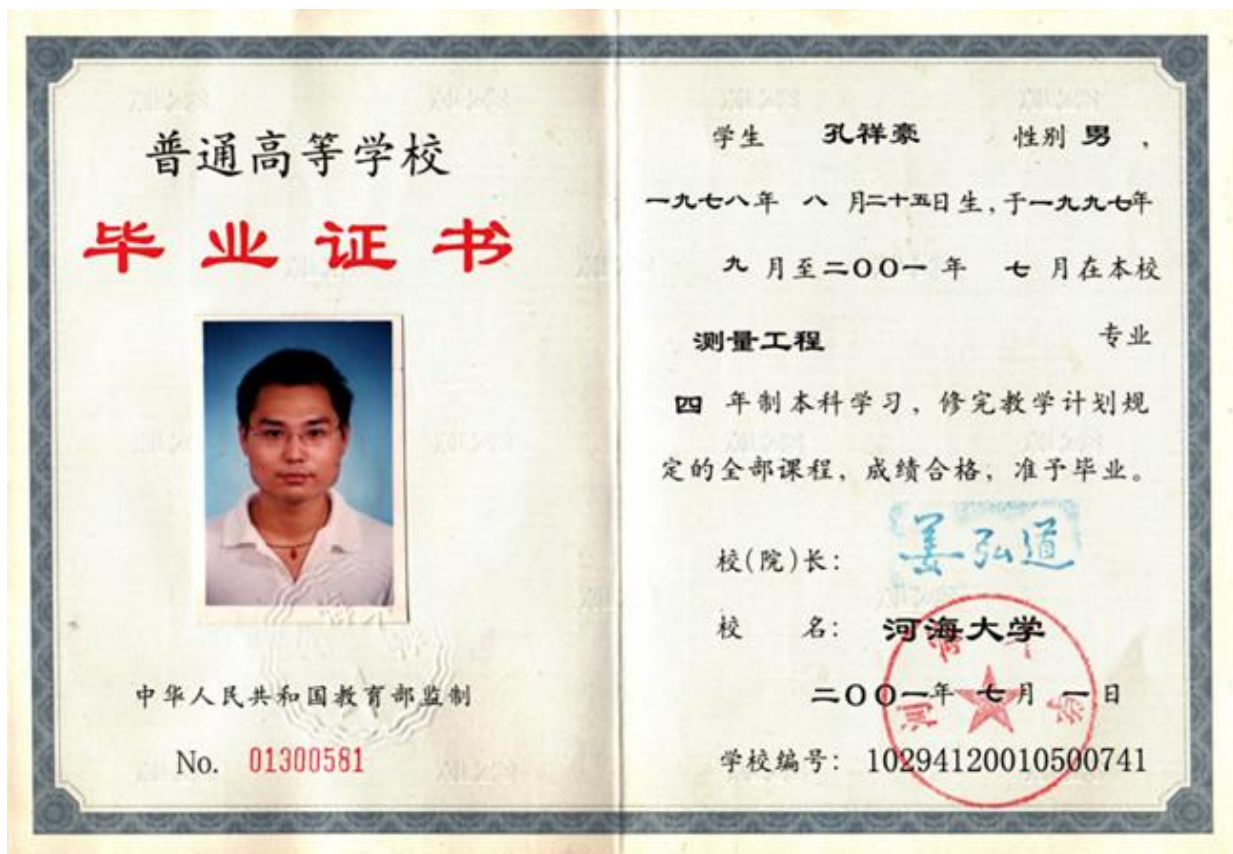 普通高等学校
毕业证书
中华人民共和国教育部监制
No. 01300581
学生 孔祥豪 性别 男,
一九七八年 八 月二十五日生,于一九九七年
九 月至二〇〇一 年 七 月在本校
测量工程 专业
四 年制本科学习,修完教学计划规
定的全部课程,成绩合格,准予毕业。
校(院)长: 姜弘道
校 名: 河海大学
二〇〇一年 七月 一日
学校编号: 102941200105000741